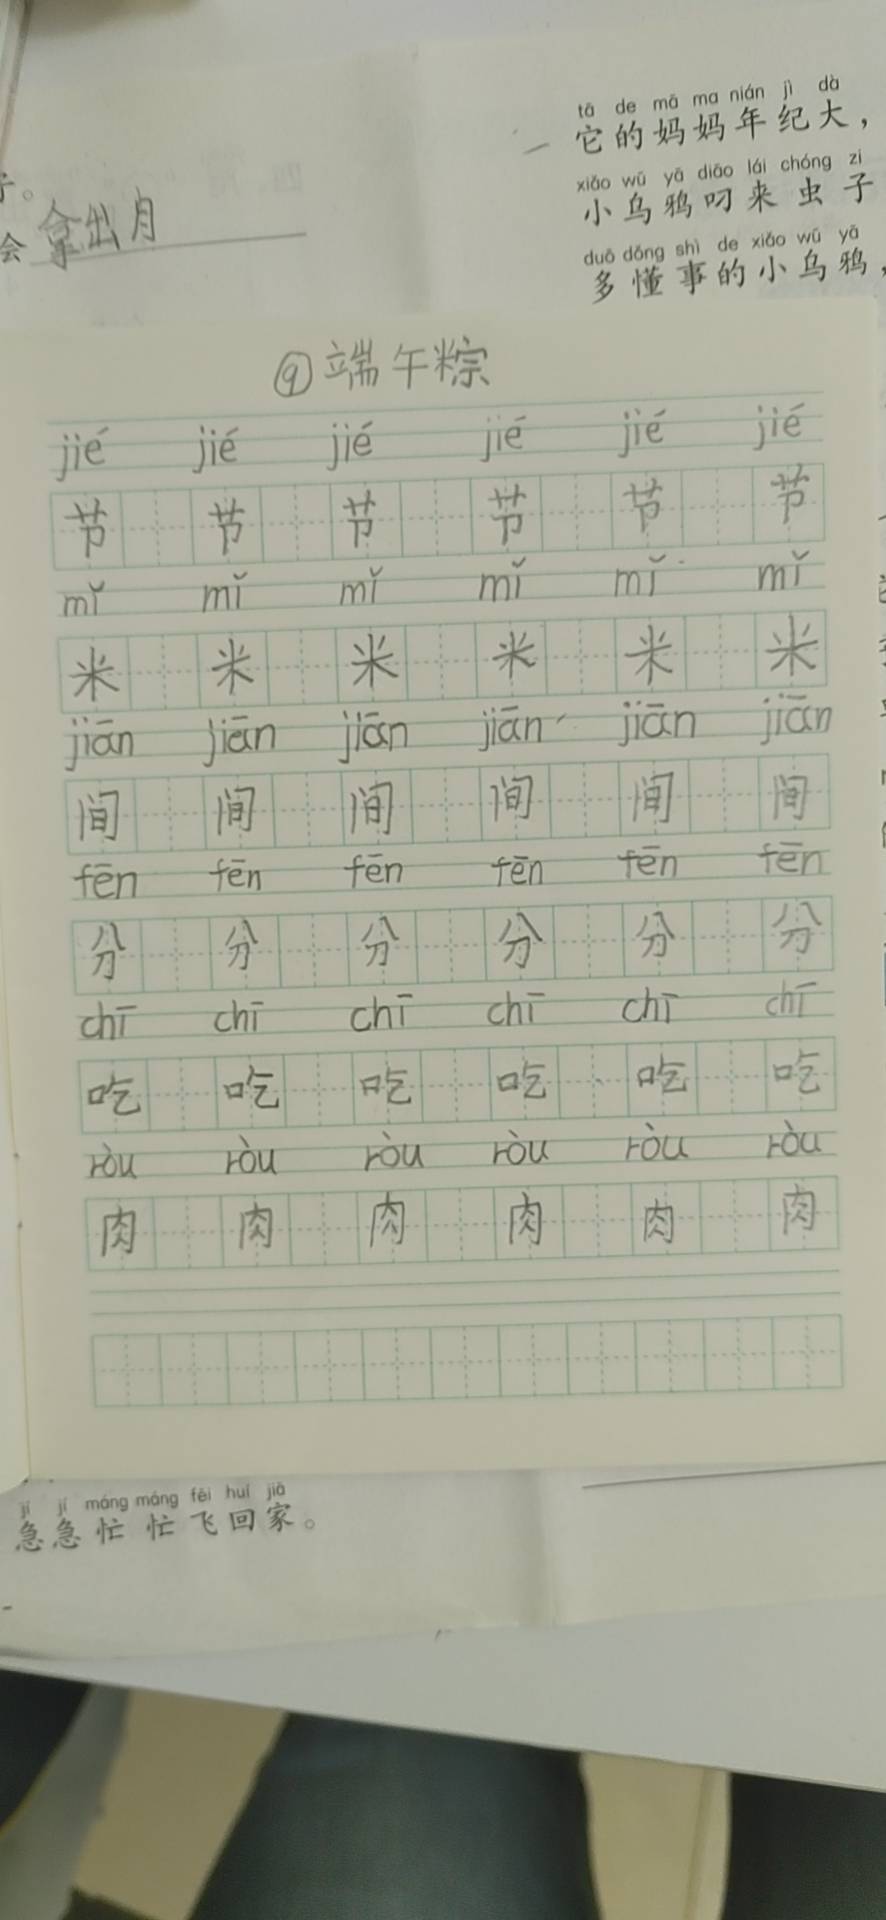 tā de mā ma nián jì dà
它的妈妈年纪大，
xiǎo wū yā diāo lái chóng zi
小乌鸦叼来虫子
duō dǒng shì de xiǎo wū yā
多懂事的小乌鸦，
子。
会 拿出月
⑨端午粽
jié jié jié jié jié jié
节 节 节 节 节 节
mǐ mǐ mǐ mǐ mǐ mǐ
米 米 米 米 米 米
jiān jiān jiān jiān jiān jiān
间 间 间 间 间 间
fēn fēn fēn fēn fēn fēn
分 分 分 分 分 分
chī chī chī chī chī chī
吃 吃 吃 吃 吃 吃
ròu ròu ròu ròu ròu ròu
肉 肉 肉 肉 肉 肉
jí jí máng máng fēi huí jiā
急急忙忙飞回家。